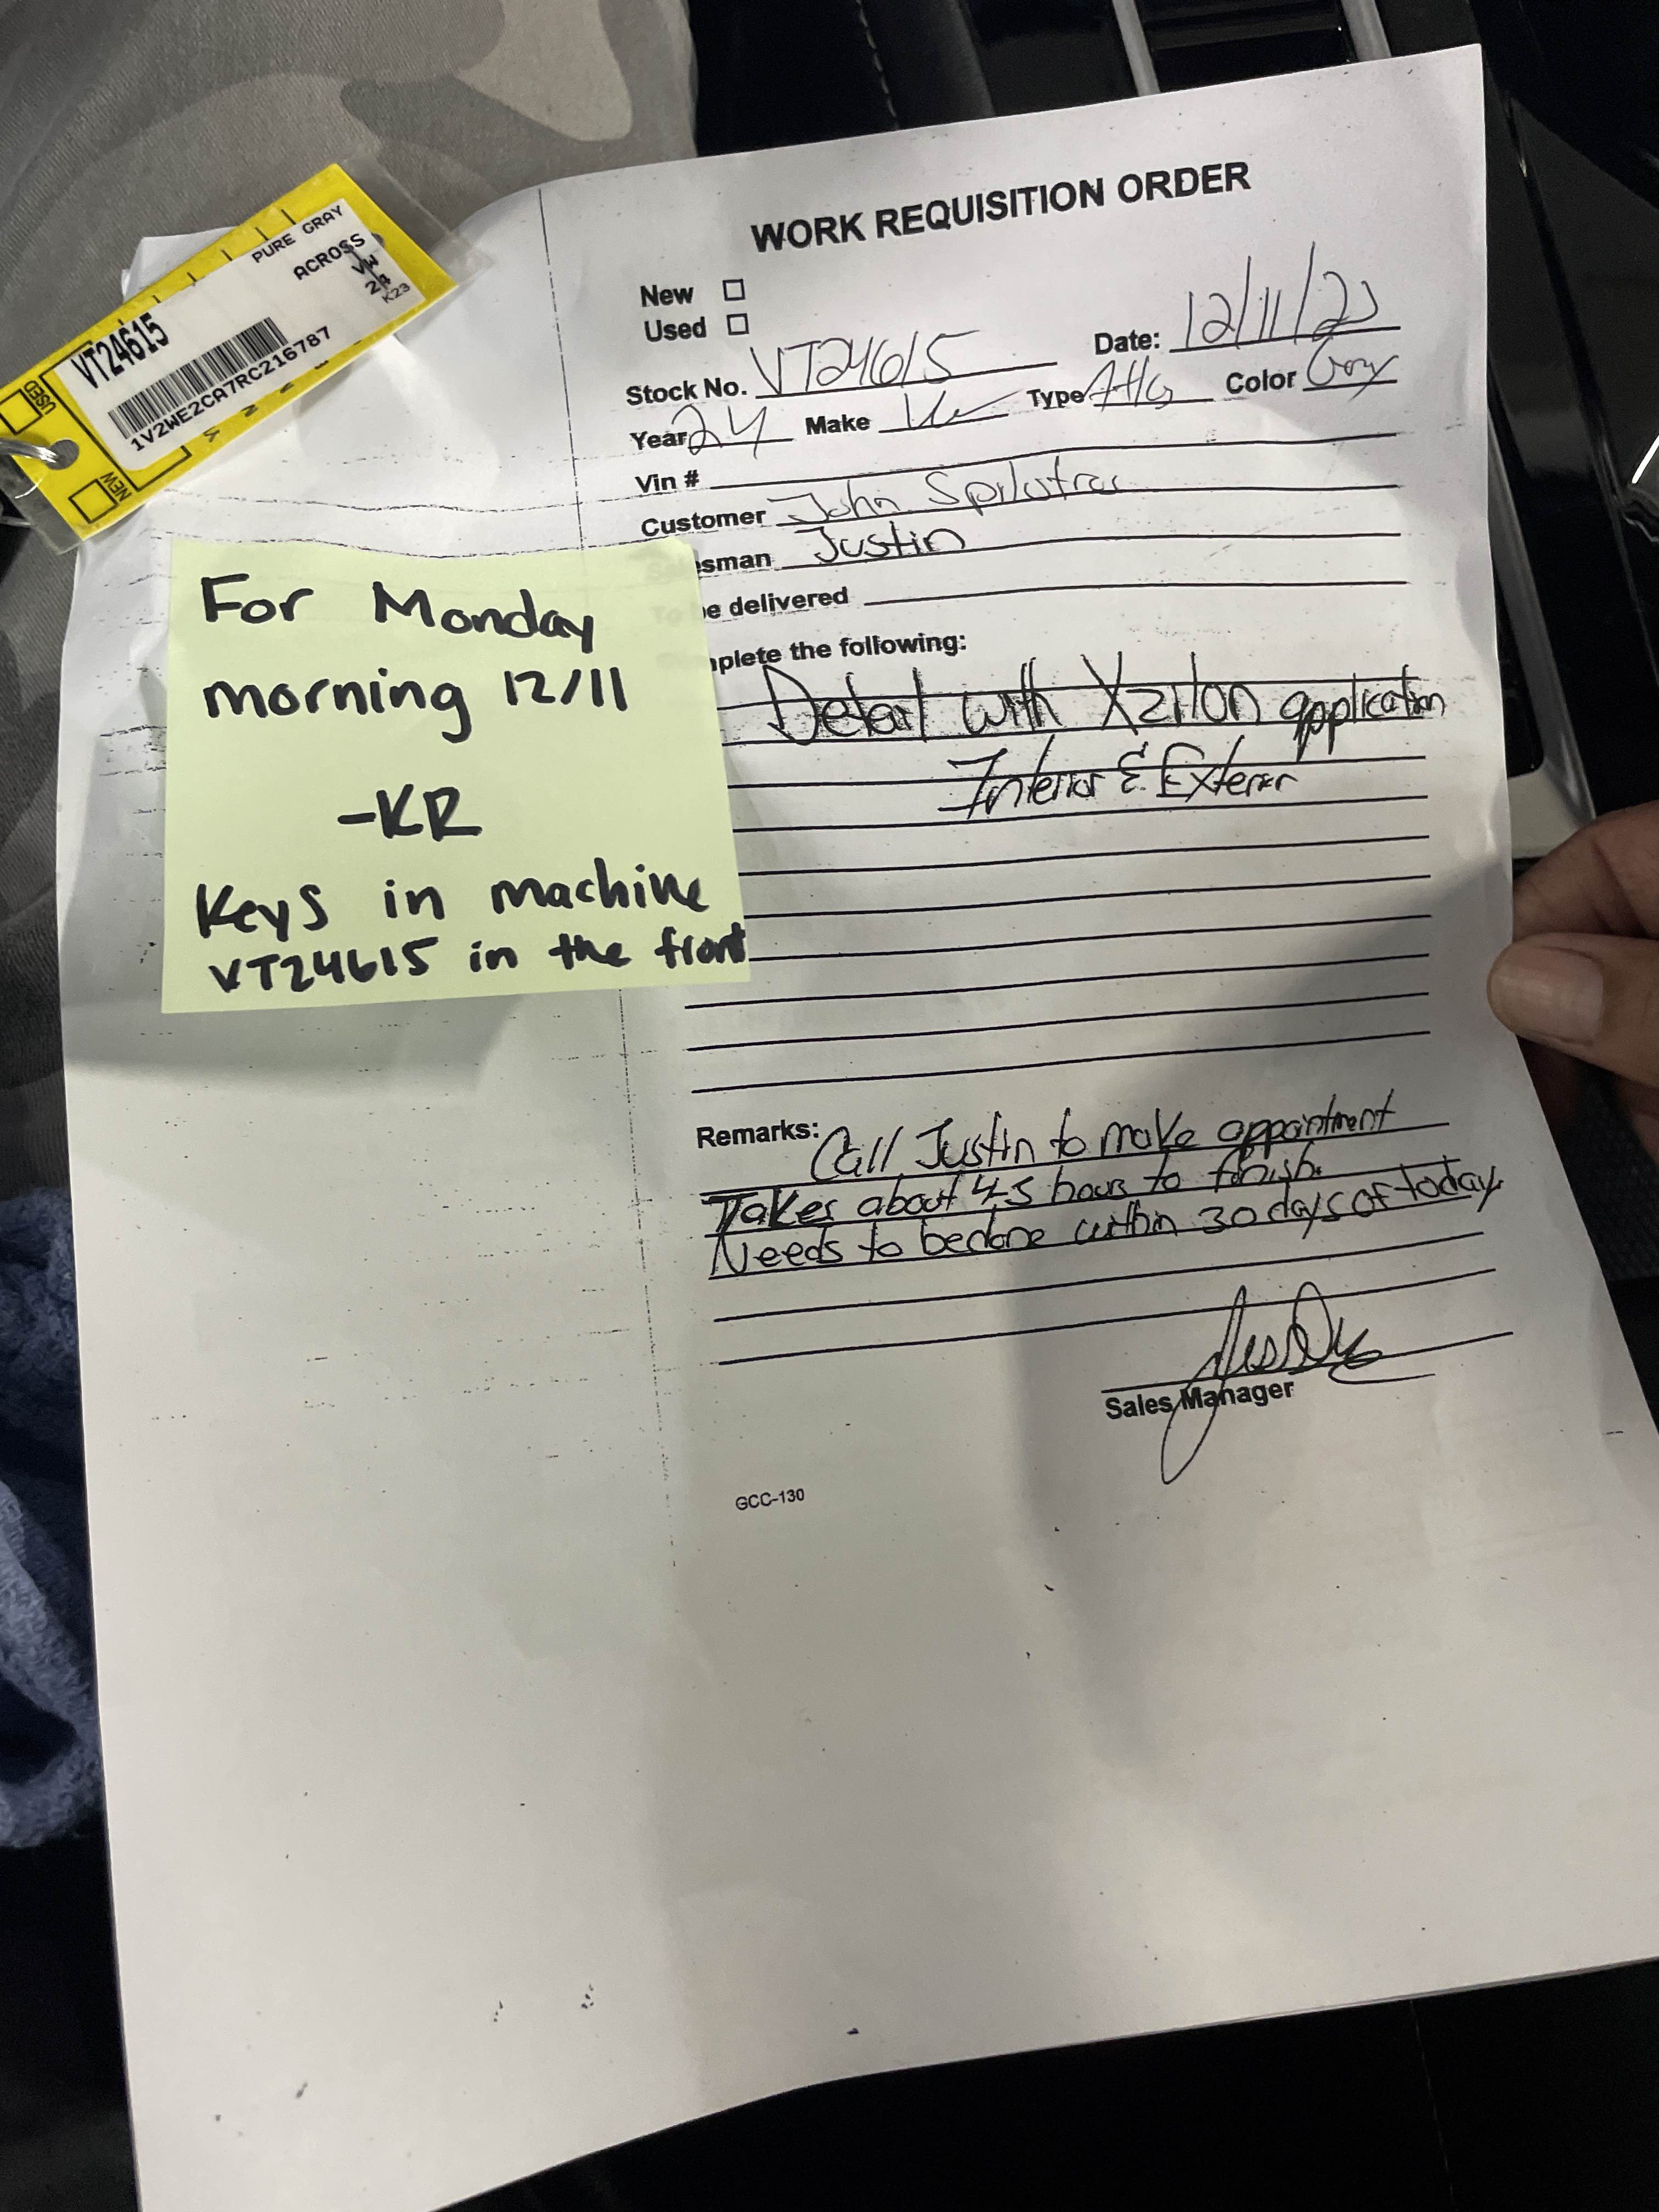 PURE GRAY
ACROSS
VW
24
K23
VT24615
1V2WE2CA7RC216787
USED
NEW
WORK REQUISITION ORDER
New
Used
Stock No. VT24615 Date: 12/11/23
Year 24 Make VW Type Atlas Color Gray
Vin #
Customer John
Salesman Justin
To be delivered
Complete the following:
Detail with Xzilon application
Interior & Exterior
For Monday
morning 12/11
-KR
Keys in machine
VT24615 in the front
Remarks: Call Justin to make appointment
Takes about 4.5 hours to finish.
Needs to be done within 30 days of today
Sales Manager
GCC-130